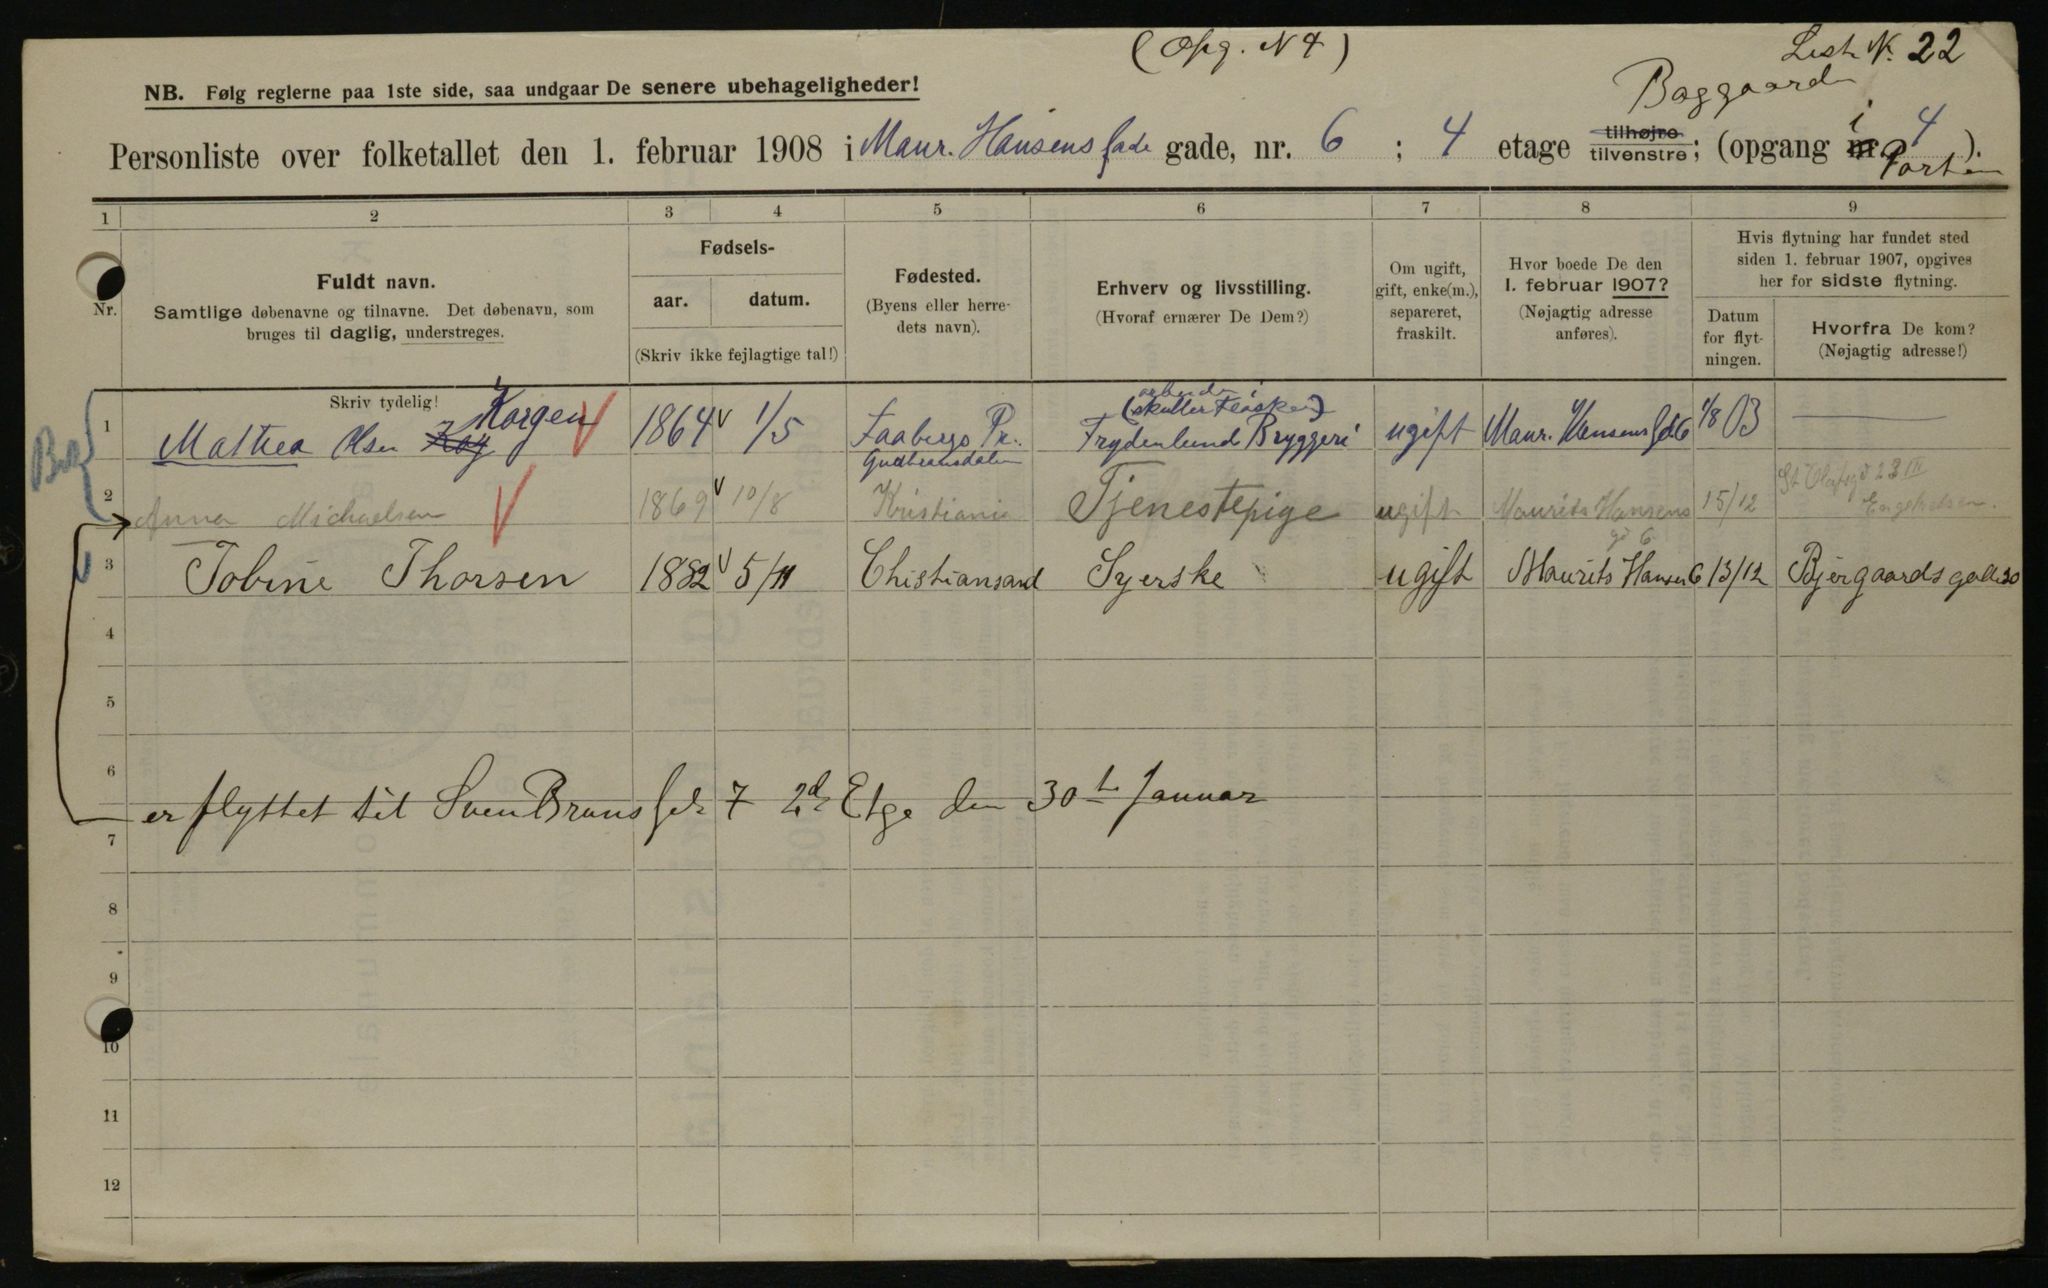 (Opg. N 4)
List N. 22
NB. Følg reglerne paa 1ste side, saa undgaar De senere ubehageligheder!
Baggaard
Personliste over folketallet den 1. februar 1908 i Maur. Hansens gade gade, nr. 6 ; 4 etage tilhøjre tilvenstre; (opgang i Porten 4).
1 2 3 4 5 6 7 8 9
Nr.
Fuldt navn.
Samtlige døbenavne og tilnavne. Det døbenavn, som
bruges til daglig, understreges.
Skriv tydelig!
Fødsels-
aar. datum.
(Skriv ikke fejlagtige tal!)
Fødested.
(Byens eller herre-
dets navn).
Erhverv og livsstilling.
(Hvoraf ernærer De Dem?)
Om ugift,
gift, enke(m.),
separeret,
fraskilt.
Hvor boede De den
1. februar 1907?
(Nøjagtig adresse
anføres).
Hvis flytning har fundet sted
siden 1. februar 1907, opgives
her for sidste flytning.
Datum
for flyt-
ningen.
Hvorfra De kom?
(Nøjagtig adresse!)
1 Mathea Olsen Korgen 1864 1/5 Faabergs Pr. Gudbransdalen (skyller Flasker) Frydenlund Bryggeri ugift Maur. Hansens Gd 6 1/8 03 —
2 Anna Michaelsen 1869 10/8 Kristiania Tjenestepige ugift Maurits Hansens gd 6 15/12 St Olafsgd 23 III Engelhetsen.
3 Tobine Thorsen 1882 5/11 Christiansand Syerske ugift Maurits Hansen 6 13/12 Bjergaardsgade 30
4
5
6
er flyttet til Sven Bruns gd 7 2d Etge den 30te Januar
7
8
9
10
11
12